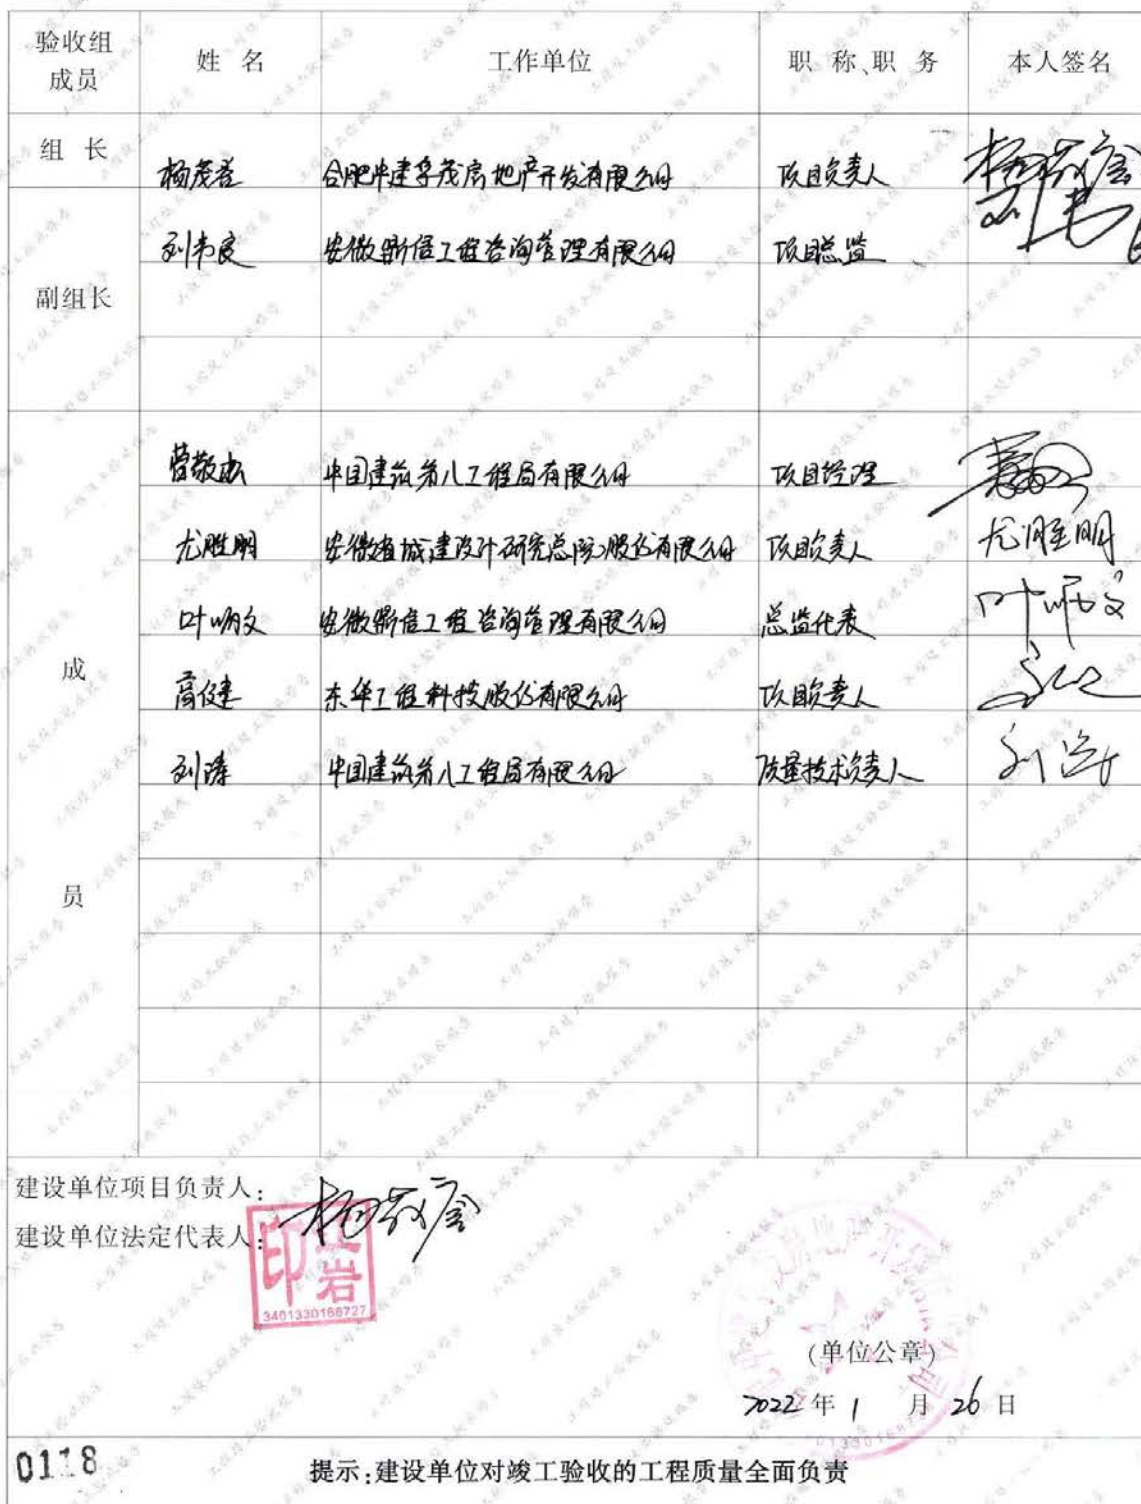 验收组成员 姓名 工作单位 职称、职务 本人签名
组长 杨茂荟 合肥中建孚茂房地产开发有限公司 项目负责人
副组长 刘韦良 安徽鼎信工程咨询管理有限公司 项目总监
成员
曹敬 中国建筑第八工程局有限公司 项目经理
尤胜明 安徽省城建设计研究总院股份有限公司 项目负责人 尤胜明
叶炳文 安徽鼎信工程咨询管理有限公司 总监代表
高健 东华工程科技股份有限公司 项目负责人
刘涛 中国建筑第八工程局有限公司 质量技术负责人 刘涛
建设单位项目负责人:
建设单位法定代表人:
印 岩
3401330168727
(单位公章)
2022年1月26日
0118
提示:建设单位对竣工验收的工程质量全面负责